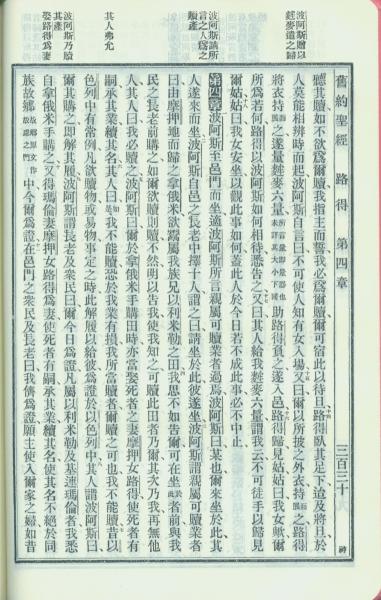 波阿斯贈以
麰麥遣之歸
波阿斯請所
言之人為之
贖產
其人弗允
波阿斯乃贖
其產
娶路得為妻
舊約聖經 路得 第四章 三百三十 神
聽其贖如不欲為爾贖我指主而誓我必為爾贖爾可宿此以待旦路得臥其足下迨及將旦於
人莫能相辨時而起波阿斯自言曰不可使人知有女入場又曰爾以所披之外衣持之路得
將衣持之遂量麰麥六量所言量即量器也未詳其大小下同助路得負之遂入邑路得歸見姑姑曰我女歟爾
所為若何路得以波阿斯如何相待悉告之又曰其人給我麰麥六量謂我云不可徒手以歸見
爾姑姑曰我女安坐以觀此事如何蓋此人於今日若不成此事必不中止
第四章波阿斯至邑門而坐適波阿斯所言親屬可贖業者過焉波阿斯曰某也爾來坐於此其
人遂來而坐波阿斯自邑之長老中擇十人謂之曰請坐於此彼遂坐波阿斯謂親屬可贖業者
曰由摩押地而歸之拿俄米欲鬻屬我族兄以利米勒之田我思不如告爾可在坐於此者前與我
民之長老前購之如爾欲贖則贖不然明以告我使我知之可贖此田者乃爾其次乃我再無他
人其人曰我必贖之波阿斯曰爾於拿俄米手購田時亦當娶死者之妻摩押女路得使死者有
嗣承其業續其名其人曰如是我不能贖恐於我業有損我所當贖者爾贖之可也我不能贖昔以
色列中有常例凡欲贖物或易物事定之時此解履以給彼為證於以色列中其人謂波阿斯曰
爾其購之即解其履波阿斯謂長老及衆民曰爾今日為證凡屬以利米勒及基連瑪倫者我悉
自拿俄米手購之又得瑪倫妻摩押女路得為妻使死者有嗣承其業續其名使其名不絕於同
族故鄉故鄉原文作故鄉之門中今爾為證在邑門之衆民及長老曰我儕為證願主使入爾家之婦如昔